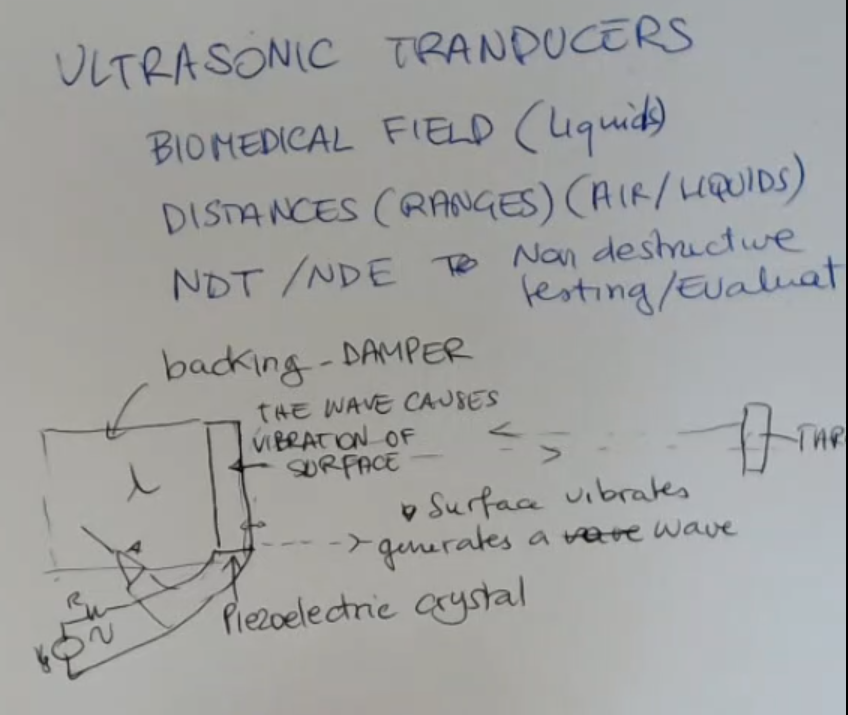 ULTRASONIC TRANDUCERS
BIOMEDICAL FIELD (Liquids)
DISTANCES (RANGES) (AIR/LIQUIDS)
NDT /NDE To Non destructive
testing/Evaluat
backing - DAMPER
THE WAVE CAUSES
VIBRATION OF
SURFACE
TAR
λ
Surface vibrates
generates a wave wave
Piezoelectric crystal
R
N